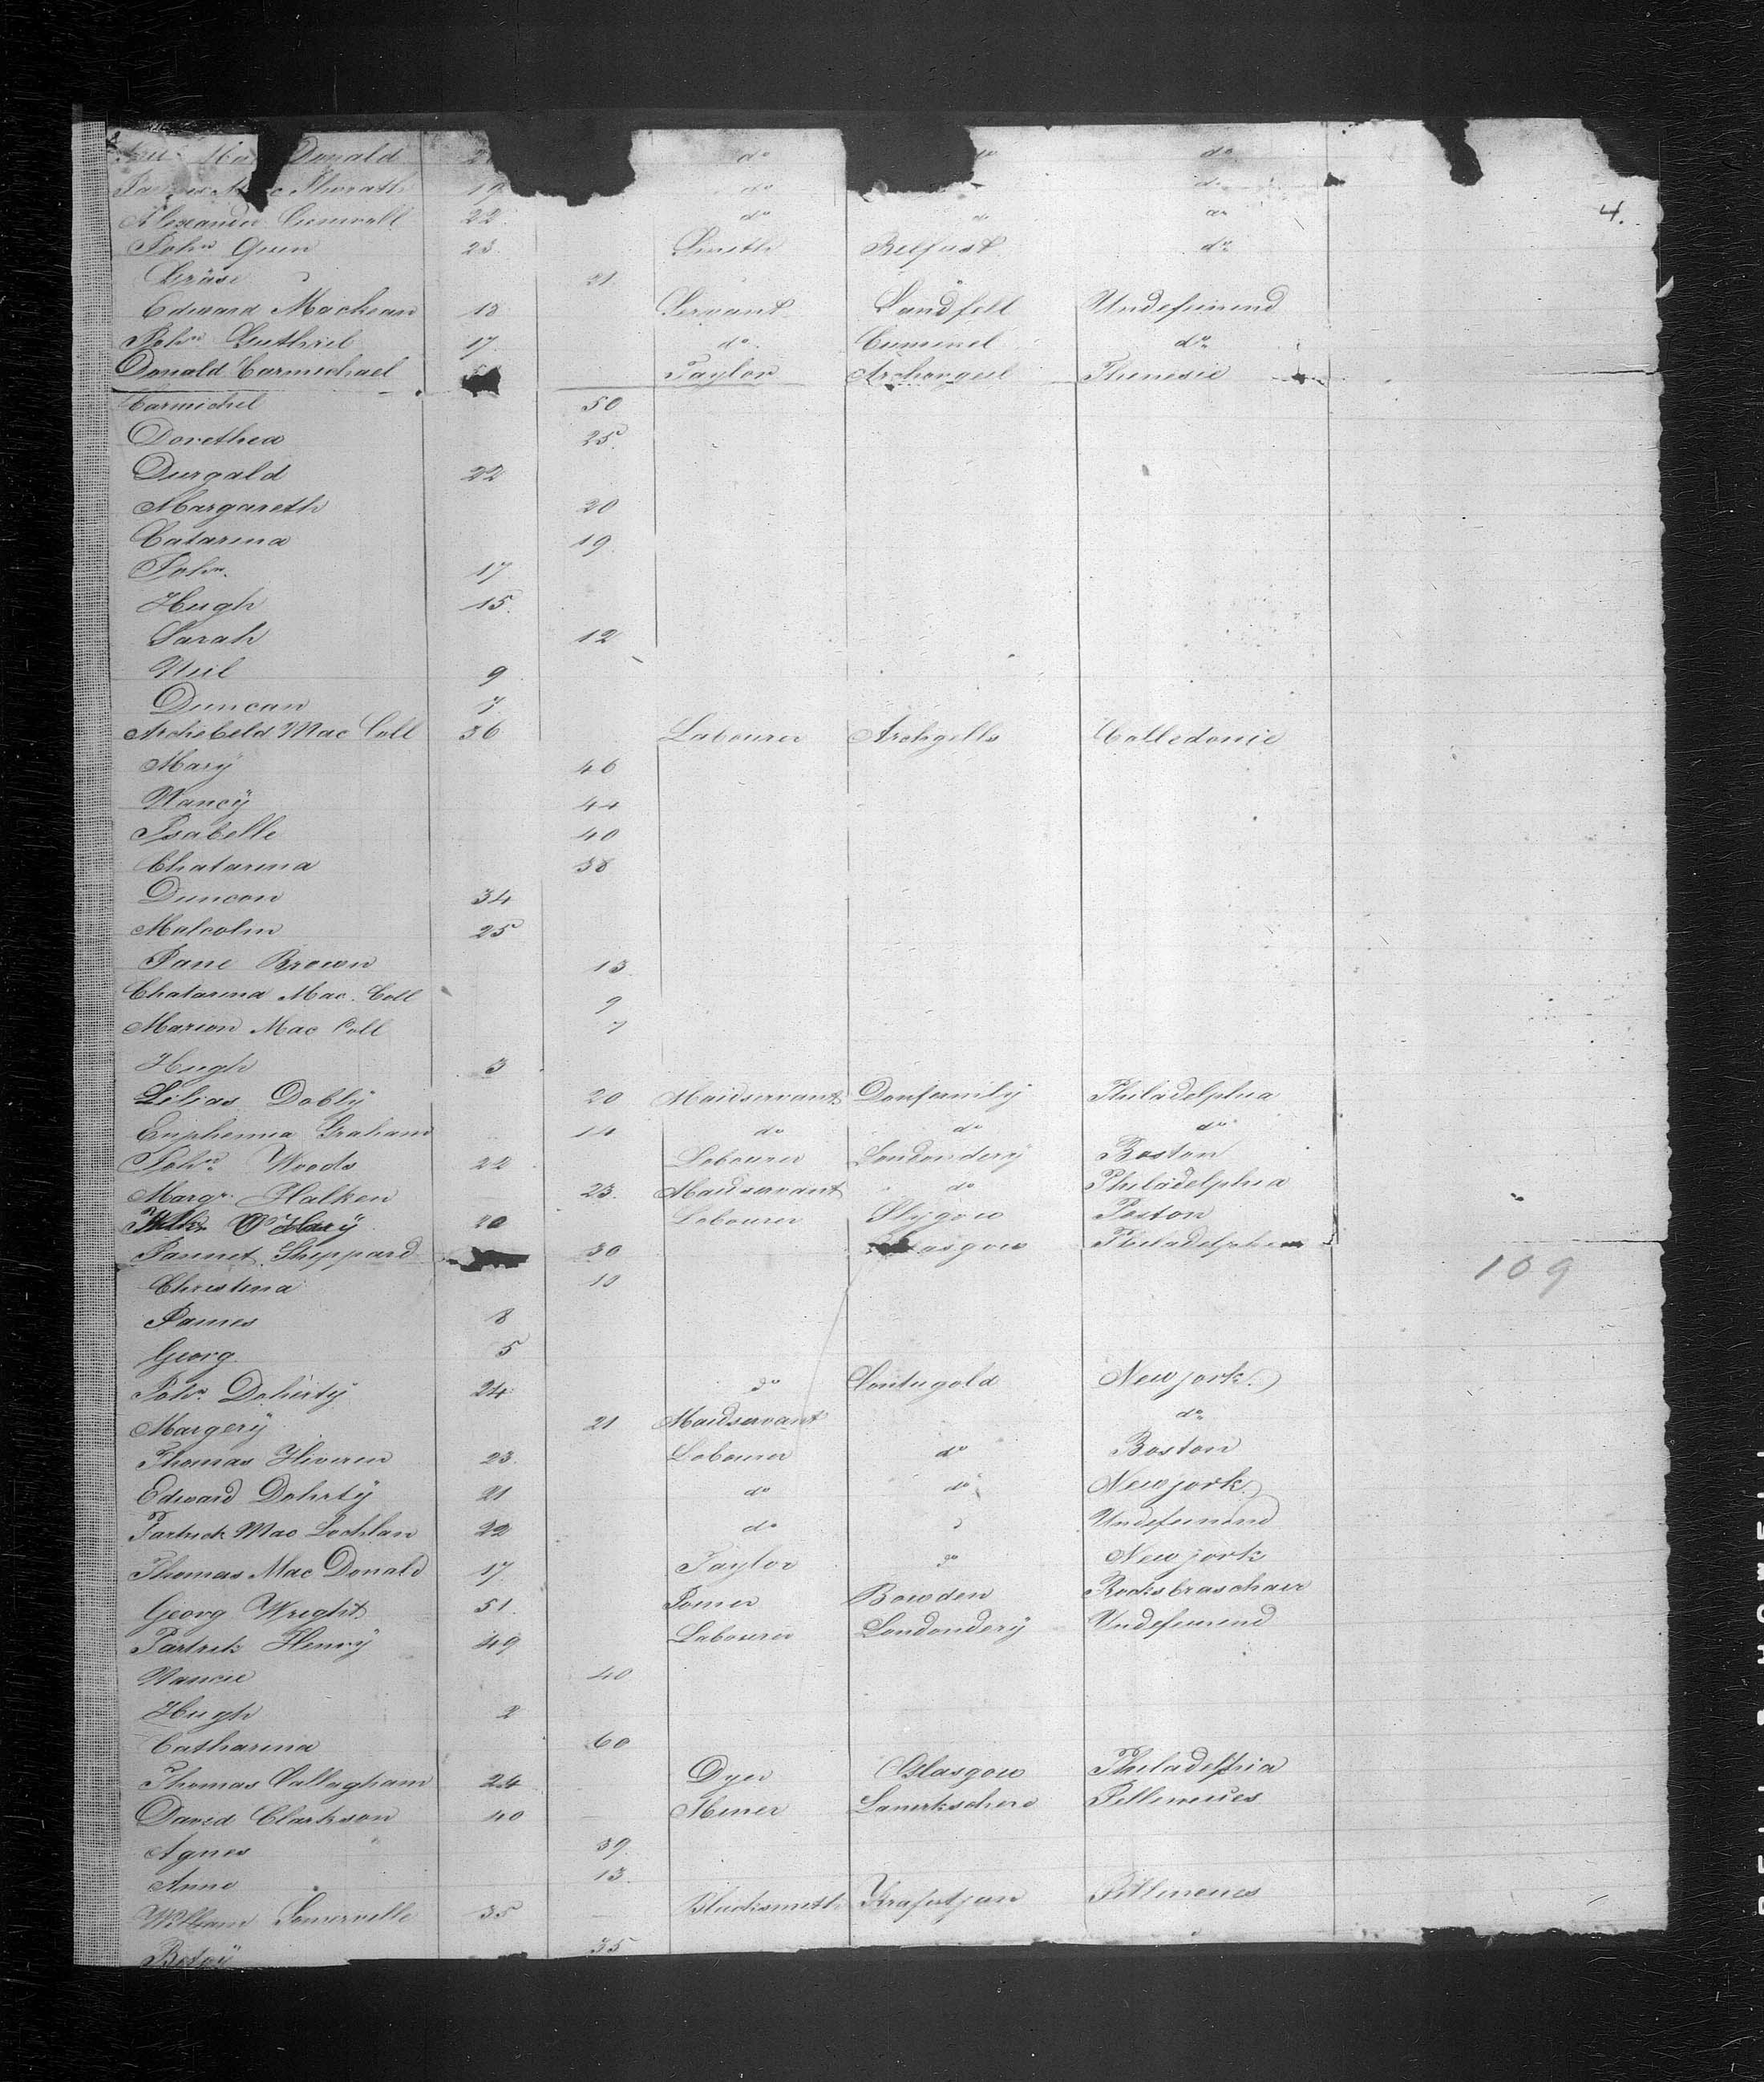 Donald 2 do do
19 do do
Alexander 22 do do do
John Gunn 23 Smith Belfast do
Gräse 21
Edward Mackean 18 Servant Sandfell Undefeinend
John Guthriel 17 do Cumenel do
Donald Carmichael Taylor Archangeel Thenesie
Carmichel 50
Dorethea 25
Durgald 22
Margareth 20
Catarina 19
John 17
Hugh 15
Sarah 12
Neil 9
Duncan 7
Archebeld Mac Coll 36 Labourer Archgells Calledonie
Marÿ 46
Nancÿ 44
Isabelle 40
Chatarina 38
Duncan 34
Malcolm 25
Jane Brown 13
Chatarina Mac Coll 9
Marion Mac Coll 7
Hugh 3
Lilias Doblÿ 20 Maidservant Donfermilÿ Philadelphia
Euphemia Graham 14 do do do
John Woods 22 Labourer Londonderÿ Boston
Margr. Halken 23 Maidservant do Philadelphia
O'Harÿ 20 Labourer Slygow Poston
Jannet Sheppard 30 Glasgow Philadelphia
109
Christina 10
James 8
Georg 5
John Dohertÿ 24 do Contugold New jork
Margerÿ 21 Maidservant do
Thomas Hiveren 23 Labourer do Boston
Edward Dohrtÿ 21 do do New jork
Partrick Mac Lochlan 22 do Undefeinend
Thomas Mac Donald 17 Taylor do New jork
Georg Wright 51 Joiner Bowden Rocksbraschaer
Partrik Henrÿ 49 Labourer Londonderÿ Undefeinend
Nancie 40
Hugh 2
Catharina 60
Thomas Callagham 24 Dyer Glasgow Philadelphia
David Clarkson 40 Miner Lanerkschere Pellineues
Agnes 39
Anne 13
William Somerville 35 Blacksmith Pillineues
Betsÿ 35
4.